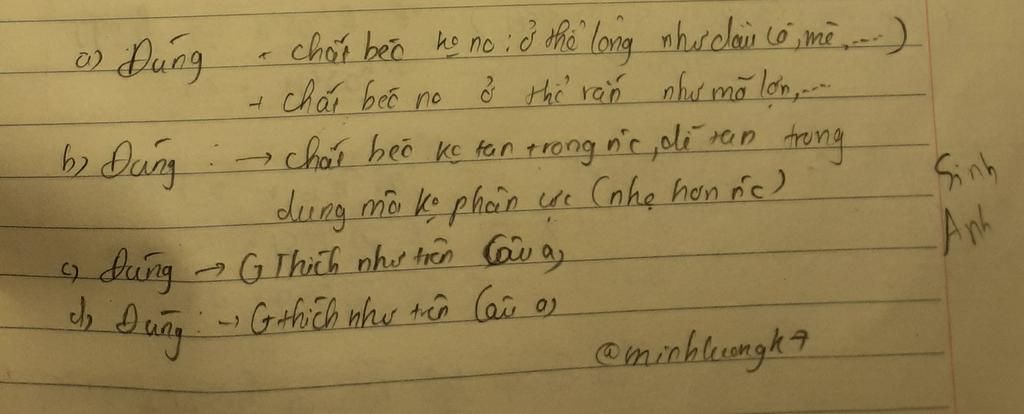 a) Đúng - chất béo ko no : ở thể lỏng như dầu cỏ, mè, ....)
+ chất béo no ở thể rắn như mỡ lợn, ...
b) Đúng : → chất béo ko tan trong nc, dễ tan trong
dung môi ko phân cực (nhẹ hơn nc)
Sinh
Anh
c) Đúng → GThích như trên Câu a,
d) Đúng : → Gthích như trên Câu a)